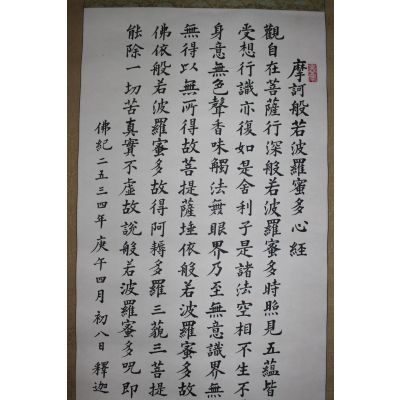 摩訶般若波羅蜜多心經
觀自在菩薩行深般若波羅蜜多時照見五蘊皆
受想行識亦復如是舍利子是諸法空相不生不
身意無色聲香味觸法無眼界乃至無意識界無
無得以無所得故菩提薩埵依般若波羅蜜多故
佛依般若波羅蜜多故得阿耨多羅三藐三菩提
能除一切苦真實不虛故說般若波羅蜜多呪即
佛紀二五三四年庚午四月初八日釋迦